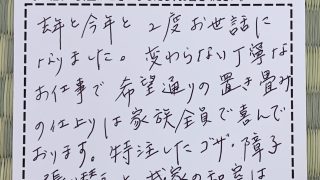 去年と今年と 2度お世話に
なりました。変わらない丁寧な
お仕事で 希望通りの置き畳み
の仕上りは家族全員で喜んで
おります。特注したゴザ・障子
張り替えと 我家の和室は